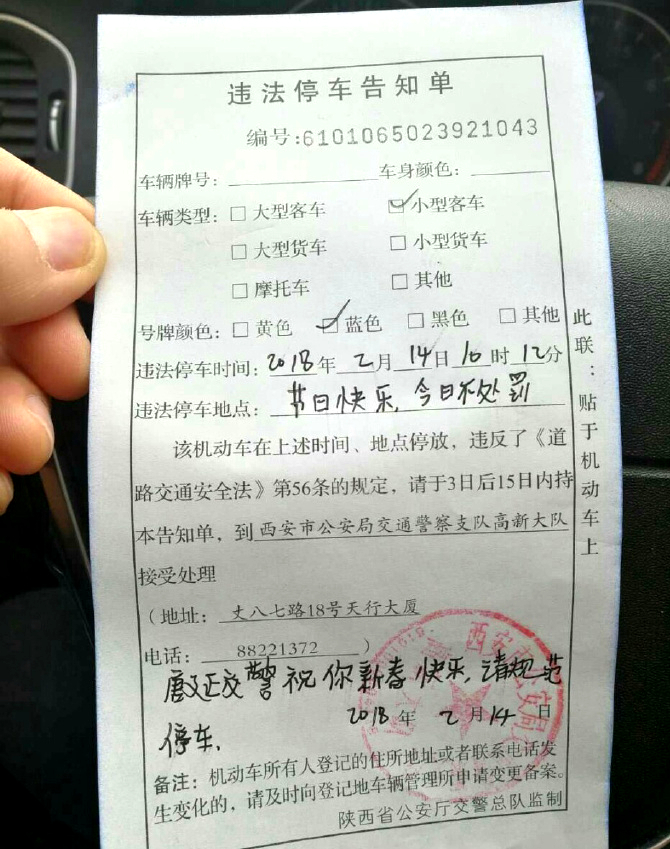 违法停车告知单
编号:6101065023921043
车辆牌号: 车身颜色:
车辆类型: □大型客车 ☑小型客车
□大型货车 □小型货车
□摩托车 □其他
号牌颜色: □黄色 ☑蓝色 □黑色 □其他
违法停车时间: 2018年2月14日16时12分
违法停车地点: 节日快乐,今日不处罚
该机动车在上述时间、地点停放,违反了《道
路交通安全法》第56条的规定,请于3日后15日内持
本告知单,到西安市公安局交通警察支队高新大队
接受处理
(地址: 丈八七路18号天行大厦
电话: 88221372 )
交警祝你新春快乐,请规范
2018年2月14日
停车.
备注: 机动车所有人登记的住所地址或者联系电话发
生变化的,请及时向登记地车辆管理所申请变更备案。
陕西省公安厅交警总队监制
此联:贴于机动车上